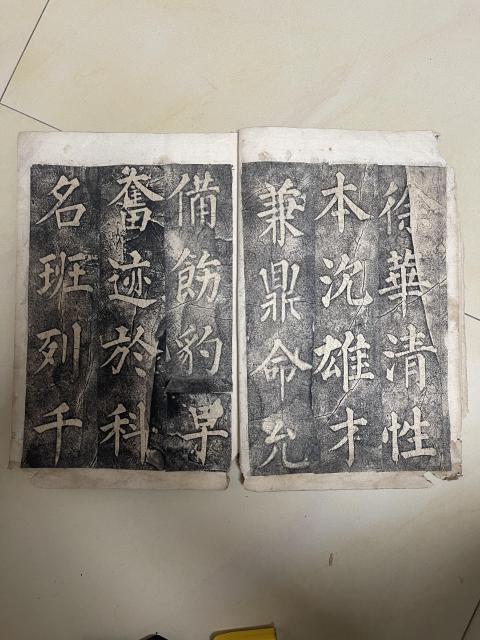 徐華清性
本沉雄才
兼鼎命允
備飭豹早
奮迹於科
名班列千